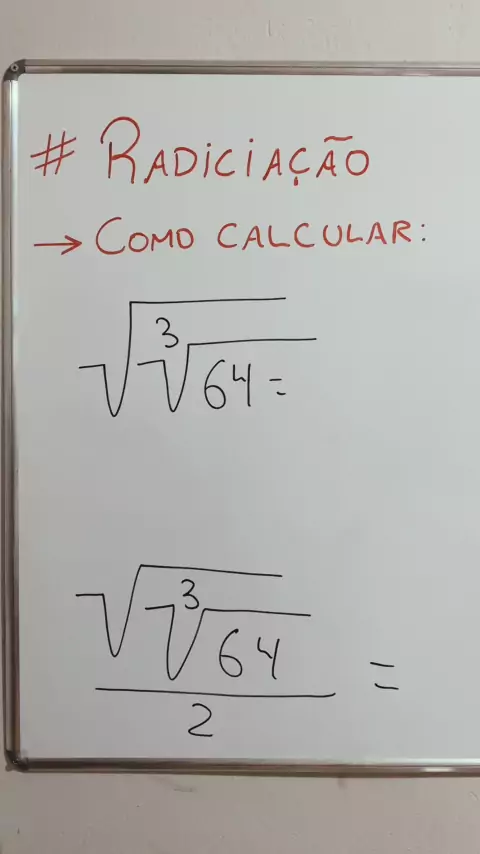 # RADICIAÇÃO
→ COMO CALCULAR:
√∛64 =
√∛64
2
=